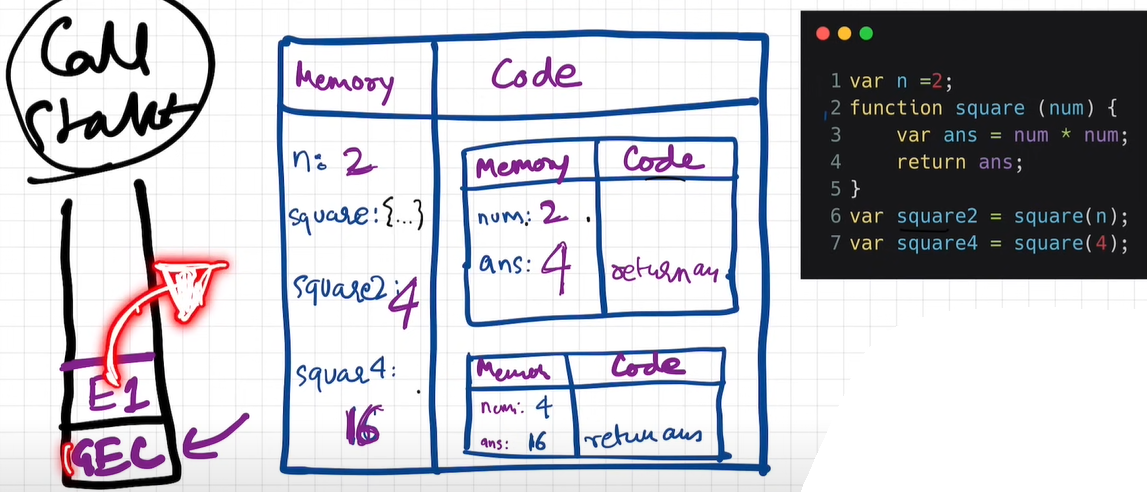 Call
Stakt
E1
GEC
Memory
Code
n: 2
square: {...}
square2: 4
squar4:
16
Memory
Code
num: 2
ans: 4
return an
Memos
Code
num: 4
ans: 16
return ans
1 var n =2;
2 function square (num) {
3 var ans = num * num;
4 return ans;
5 }
6 var square2 = square(n);
7 var square4 = square(4);